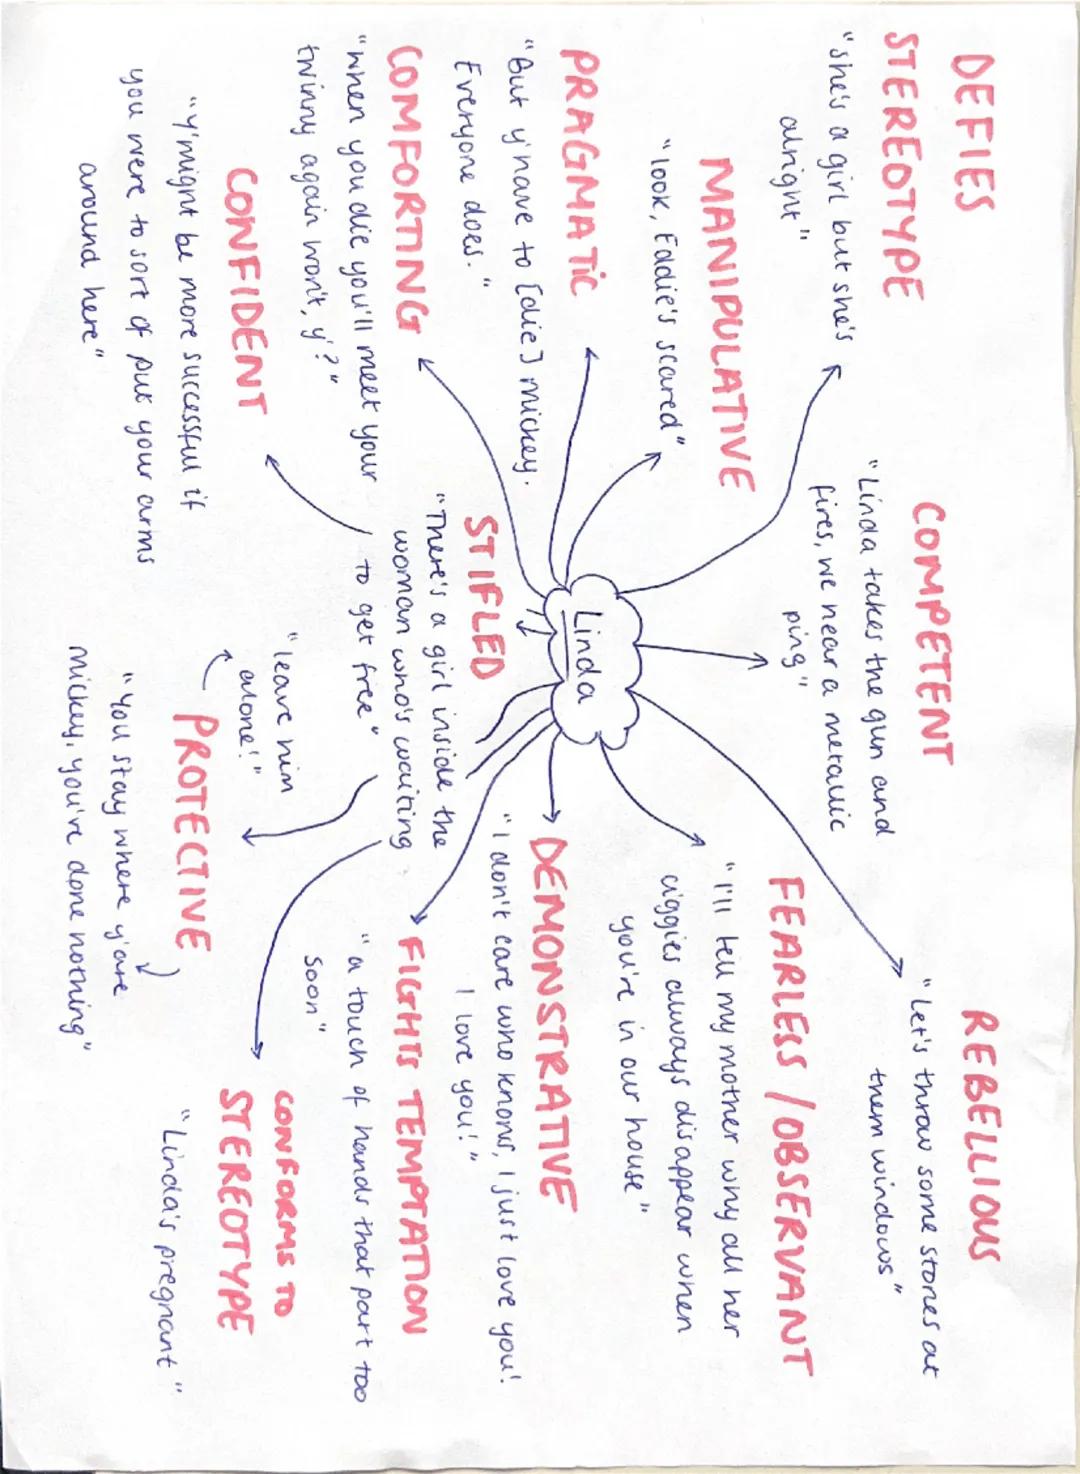 DEFIES
STEREOTYPE
"she's a girl but she's
alright"
COMPETENT
"Linda takes the gun and
fires, we hear a metallic
ping"
REBELLIOUS
"Let's throw some stones at
them windows"
MANIPULATIVE
"look, Eddie's scared"
FEARLESS / OBSERVANT
"I'll tell my mother why all her
ciggies always disappear when
you're in our house"
PRAGMATIC
"But y'have to [die] mickey.
Everyone does."
Linda
DEMONSTRATIVE
"I don't care who knows, I just love you!
I love you!"
COMFORTING
"when you die you'll meet your
twinny again won't, y'?"
STIFLED
"There's a girl inside the
woman who's waiting
to get free"
FIGHTS TEMPTATION
"a touch of hands that part too
soon"
CONFIDENT
"y'might be more successful if
you were to sort of put your arms
around here"
"leave him
alone!"
PROTECTIVE
"You stay where y'are
mickey, you've done nothing"
CONFORMS TO
STEREOTYPE
"Linda's pregnant"